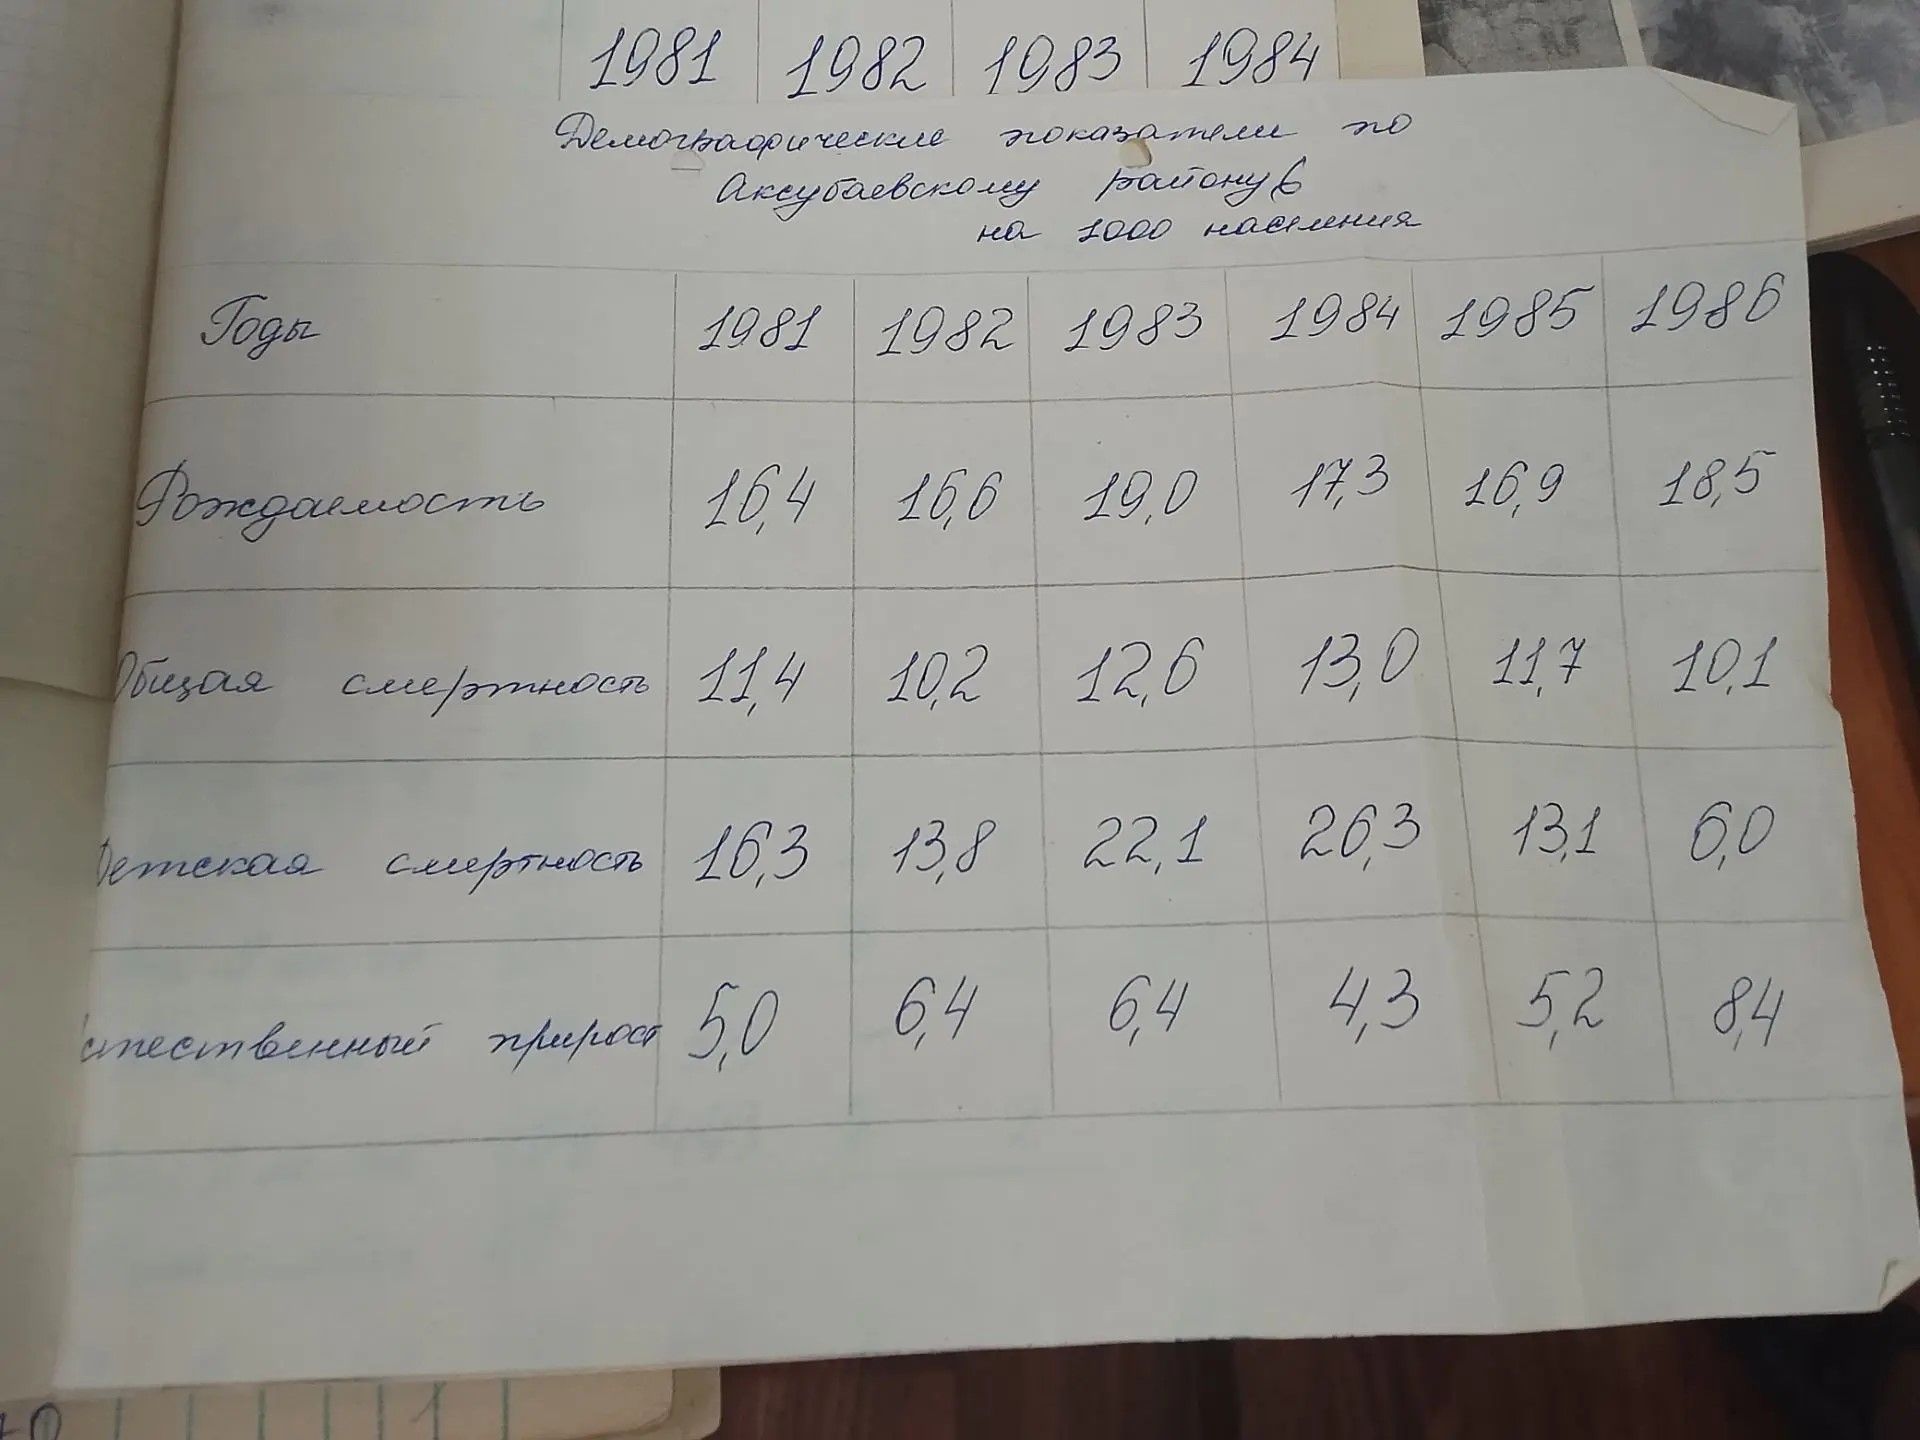 1981 1982 1983 1984
Демографические показатели по
Аксубаевскому району в
на 1000 населения
Годы 1981 1982 1983 1984 1985 1986
Рождаемость 16,4 16,6 19,0 17,3 16,9 18,5
Общая смертность 11,4 10,2 12,6 13,0 11,7 10,1
Детская смертность 16,3 13,8 22,1 26,3 13,1 6,0
стественный прирост 5,0 6,4 6,4 4,3 5,2 8,4